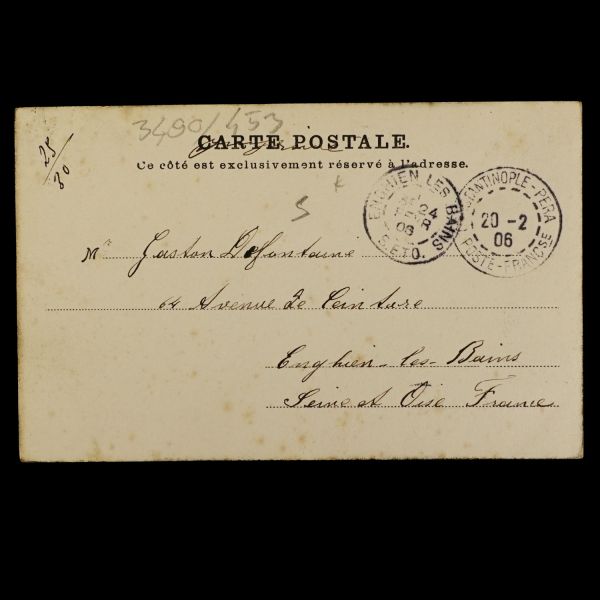 3490/453
25/30
CARTE POSTALE.
Ce côté est exclusivement réservé à l'adresse.
S
ENGHIEN LES BAINS
24
FEVR
06
S.ET O.
CONSTANTINOPLE-PERA
20 -2
06
POSTE-FRANCSE
Mr Gaston Defontaine
64 Avenue de Ceinture
Enghien-les-Bains
Seine et Oise France